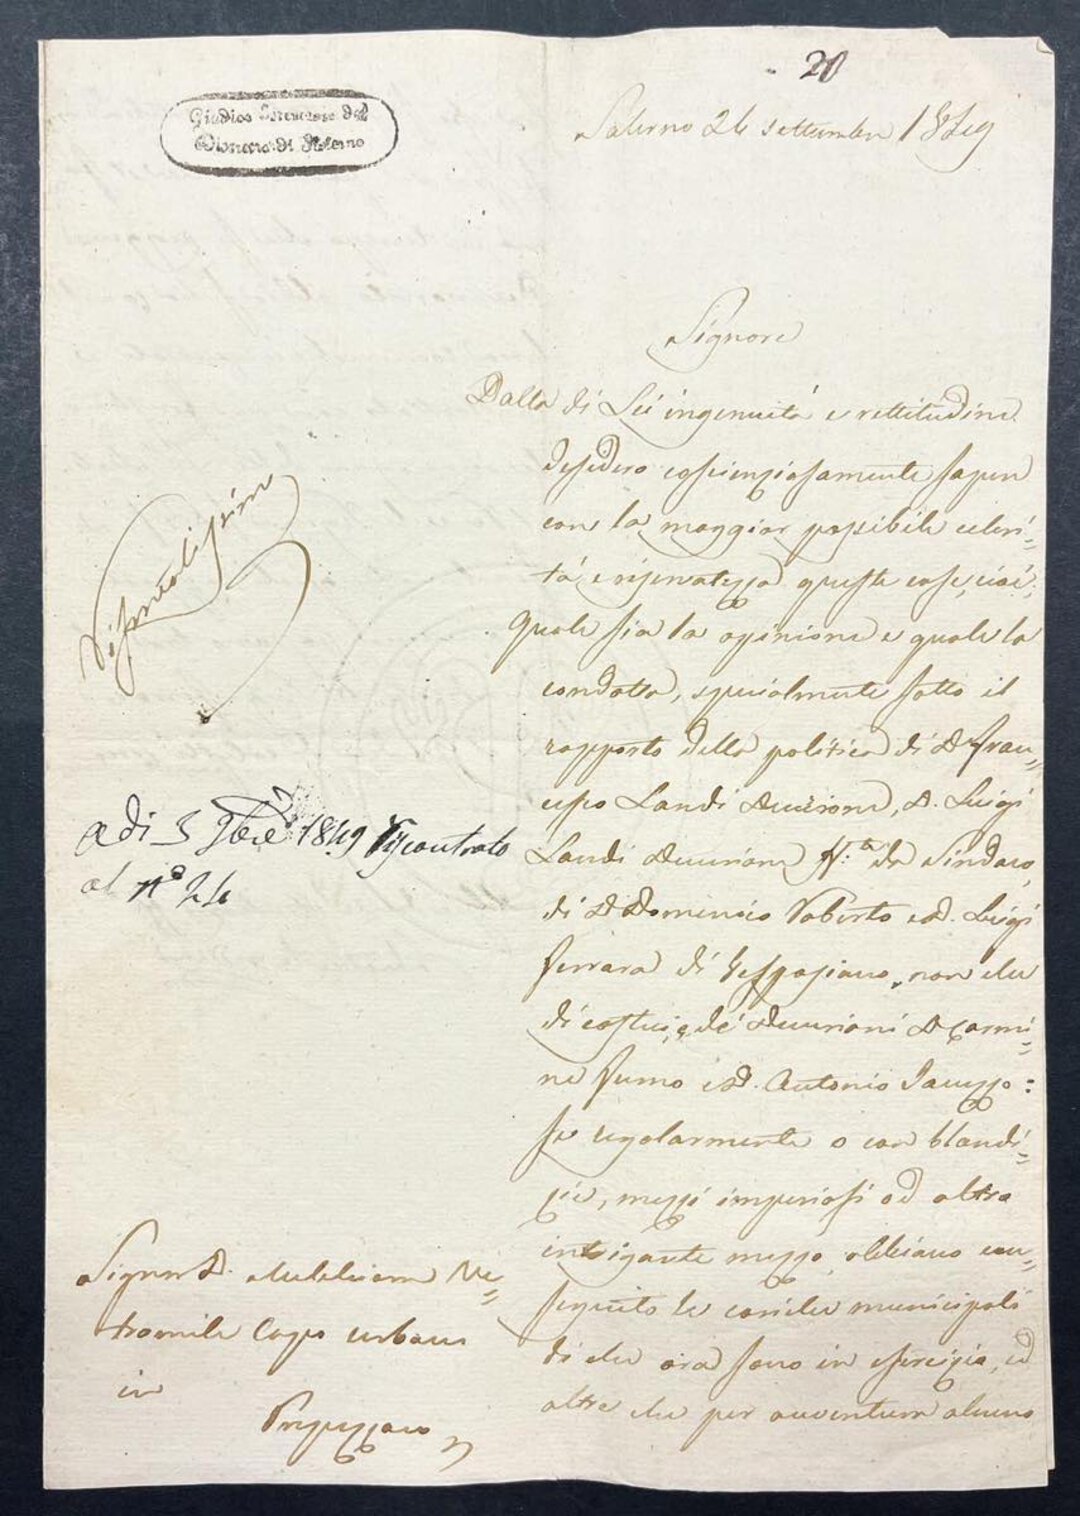 20
Giudice Istruttore del
Distretto di Salerno
Salerno 24 settembre 1849
Signore
Dalla di Lei ingenuità e rettitudine
desidero coscienziosamente sapere
con la maggior possibile celeri=
tà, e riservatezza queste cose, cioè:
Quale sia la opinione e quale la
condotta, specialmente sotto il
rapporto della politica di D. Fran=
cesco Landi Decurione, D. Luigi
Landi Decurione 
di D. Domenico Roberto e D. Luigi
Ferrara di Vespasiano, non che
di costui, e de' Decurioni D. Carmi=
ne Fumo e D. Antonio
se regolarmente o con blandi=
zie, mezzi imperiosi od altro
intrigante mezzo abbiano con=
seguito le cariche municipali
di che ora sono in esercizio, ed
altre che per avventura alcuno
Riservatissima
A di 5 9bre 1849 Riscontrato
al N° 24
Signor D.
Capo urbano
in